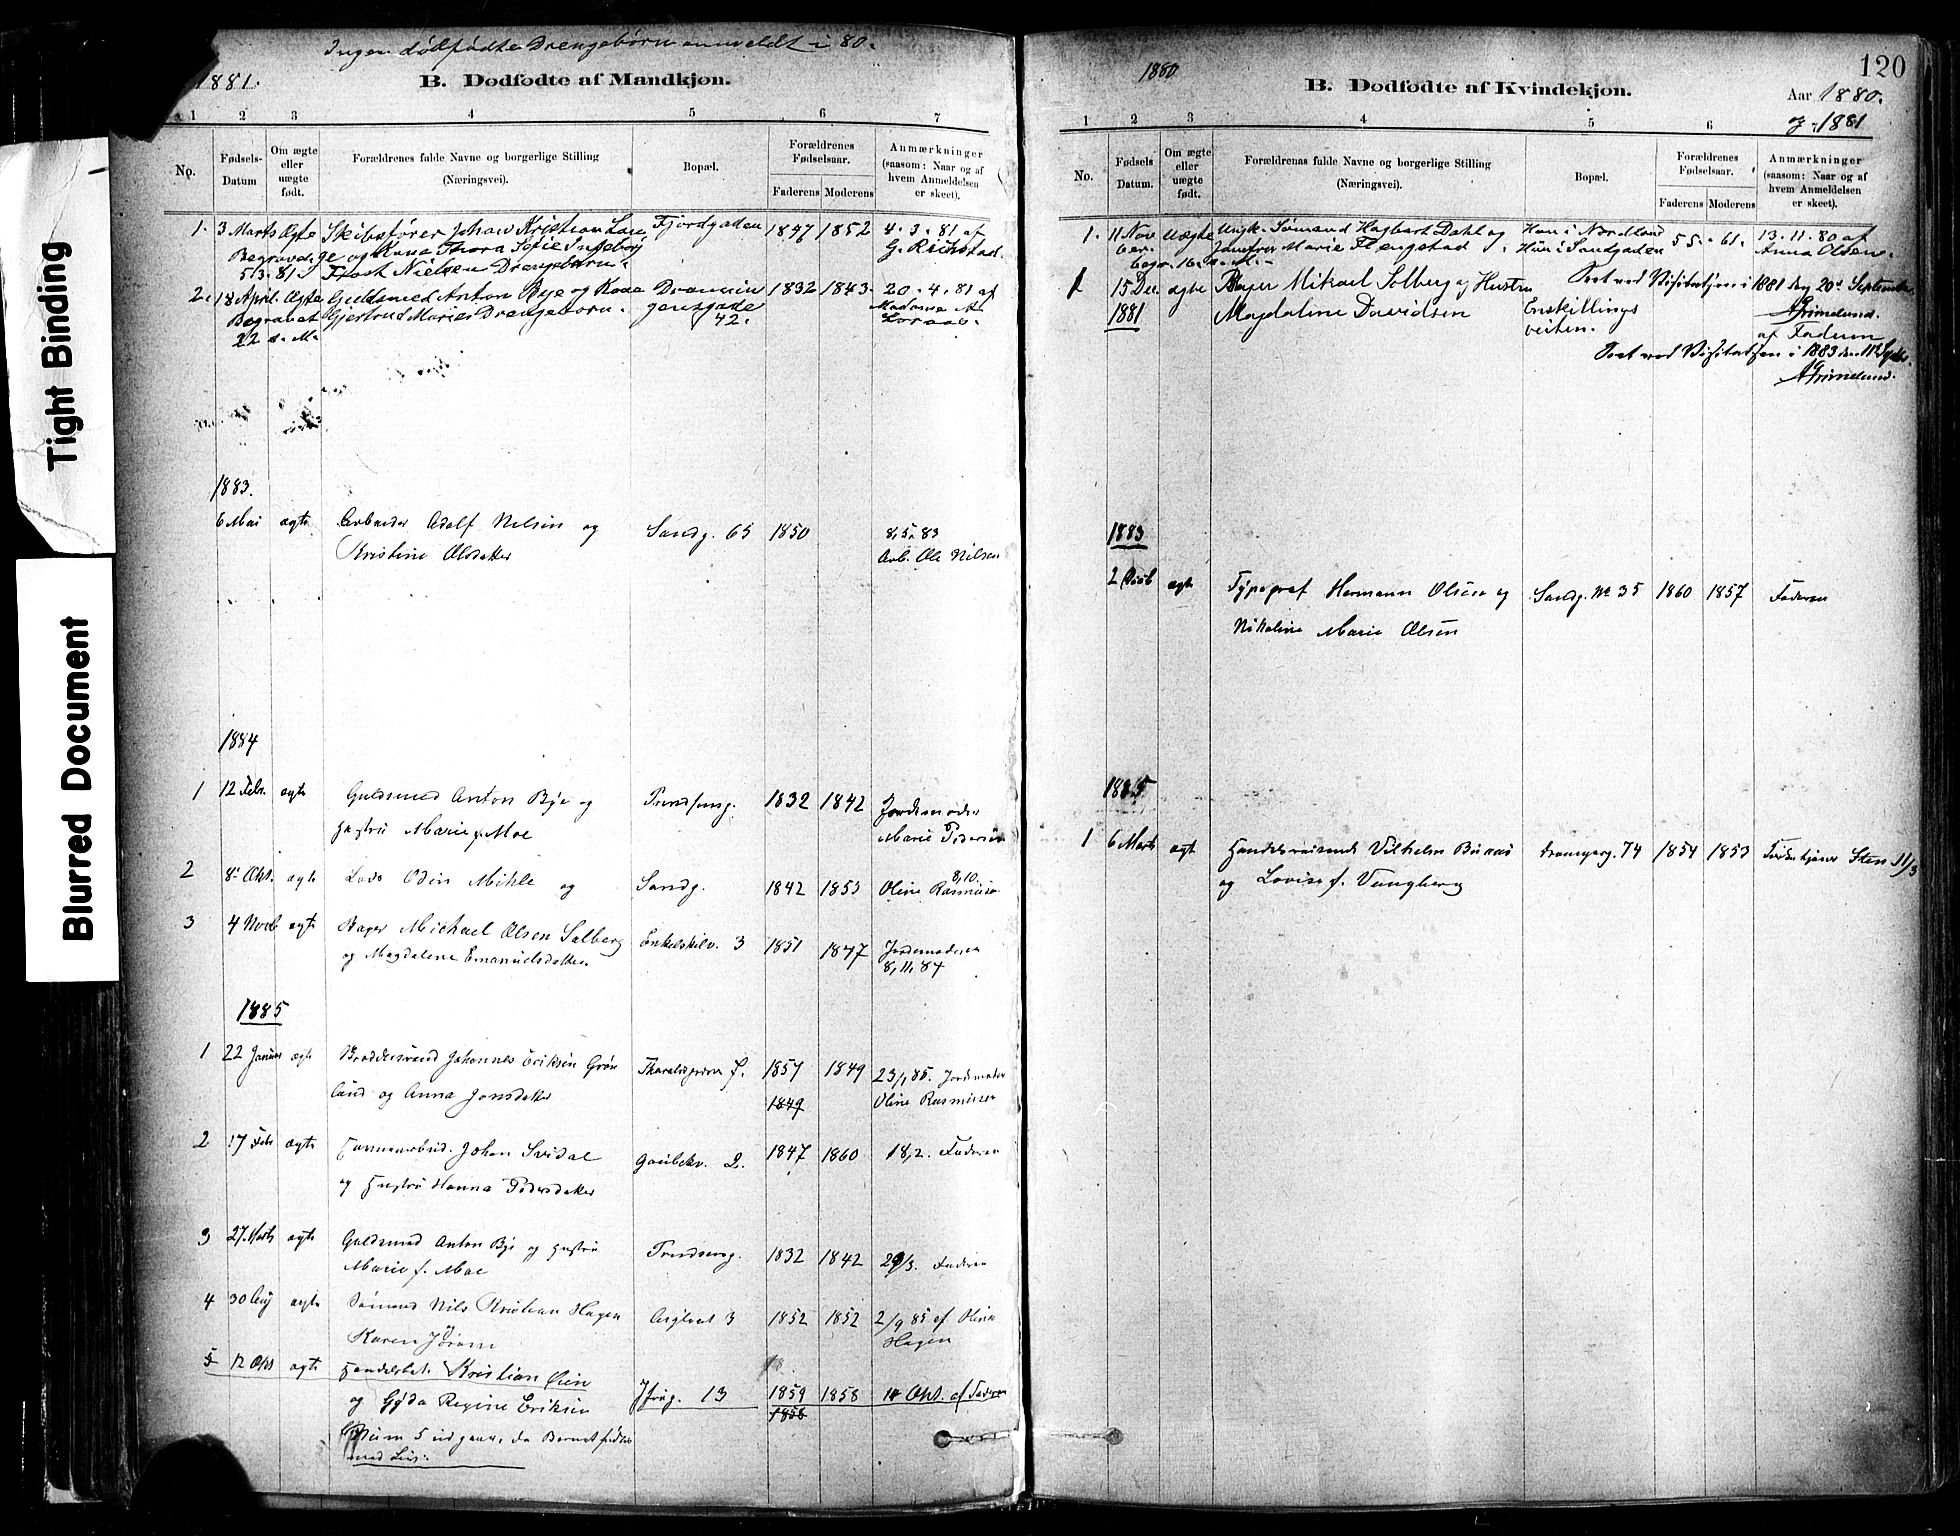 Ingen dødfødte Drengebørn anmeldt i 80.
1881.
B. Dødfødte af Mandkjøn.
1 2 3 4 5 6 7
No.
Fødsels-Datum
Om ægte eller uægte født.
Forældrenes fulde Navne og borgerlige Stilling (Næringsvei).
Bopæl.
Forældrenes Fødselsaar.
Faderens Moderens
Anmærkninger (saasom: Naar og af hvem Anmeldelsen er skeet).
1. 3 Marts Ægte Skibsfører Johan Kristian Fjordgaden 1847 1852 4.3.81 af
Begravet og Kona Thora Sofie Ingeborg G.
5/3.81. Frost Nielsen Drengebarn.
2. 18 April. Ægte Guldsmed Anton Bye og Kone 1832 1843. 20.4.81 af
Begravet Gjertrud Marie Drengebarn. gensgade Madame
22 d. M. 42.
1883.
6 Mai ægte Arbeider Adolf Nilsen og Sandg. 65 1850 8.5.83
Kristine Olsdatter Arb. Ole Nilsen
1884
1 12 Febr. ægte Guldsmed Anton Bye og 1832 1842 Jordemoder
Hustru Marie f. Moe Marie Pedersen
2 8de Okt. ægte Lods Odin og Sandg. 1842 1853 8,10.
Oline Rasmusen
3 4 Novb ægte Bager Michael Olsen Solberg Enkelskilv. 3 1851 1847 Jordemoderen
og Magdalene Emanuelsdatter. 8,11,84
1885
1 22 Januar ægte Johannes Eriksen Grøn 1857 1849 23/1 85. Jordemoder
lund og Anna Jonsdatter 1849 Oline Rasmusen
2 17 Feb ægte Johan 2. 1847 1860 18,2. Faderen
og Hustru Hanna Pedersdatter
3 27. Marts ægte Guldsmed Anton Bye og Hustru 1832 1842 29/3. Faderen
Marie f. Moe
4 30 Aug ægte Sømand Nils Kristian Hagen 3 1852 1852 2/9 85 af
Karen Hagen
5 12 Okt ægte Kristian Øien
og Gyda Regine Eriksen 13 1859 1858 Okt. af Faderen
1858
Num 5 udgaar, da Barnet fødtes
med Liv.
120
1880
B. Dødfødte af Kvindekjøn.
Aar 1880.
og 1881
1 2 3 4 5 6
No.
Fødsels Datum.
Om ægte eller uægte født.
Forældrenas fulde Navne og borgerlige Stilling (Næringsvei).
Bopæl.
Forældrenes Fødselsaar.
Faderens Moderens
Anmærkninger (saasom: Naar og af hvem Anmeldelsen er skeet).
1. 11 Nov Uægte Ungk. Sømand Hagbart Dahl og Han i Nordland 55. 61. 13.11.80 af
ber. Jomfru Marie Flengstad. Hun i Sandgaden Anna Olsen.
begr. 16. s. M.
1 15 Dec. ægte Bager Mikael Solberg og Hustru Seet ved Visitatsen i 1881 den 20de September
1881 Magdaline Davidsen Enskillings Grimelund.
veiten. af Faderen
Seet ved Visitatsen i 1883 den 11te Septbr.
Grimelund.
1883
2 ægte Typograf Hermann Olsen og Sandg. No 35 1860 1857 Faderen
Nikoline Marie Olsen
1885
1 6 Marts ægte Handelsreisende Vilhelm 74 1854 1853 Sten 11/3
og Lovise f.
Tight Binding
Blurred Document